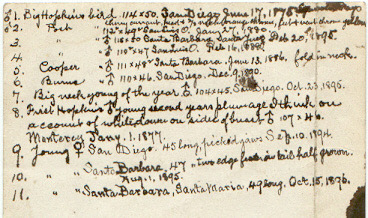 ♂1. Big Hopkins bird. 114x50. San Diego June 17, 1895.
♂2. Poch " 112"x49" San Luis O. Jany 27, 1890.
3. " ♂ 115x50 Santa Barbara Feb 20, 1895.
4. " ♂ 110"x47 San Luis O. Feb 16, 1889.
5. Cooper " ♂ 111x48" Santa Barbara. June 13. 1886. fold in neck.
6. Burns " ♂ 110x46. San Diego. Dec. 9, 1890.
7. Big neck young of the year ♂. 104x45. San Diego. Oct. 23, 1895.
8. First Hopkins ♂ young second years plumage I think on
account of white down on sides of breast ♂ 107x46.
Monterey Jany. 1. 1897.
9. Young ♀ San Diego. 45 long, picked jaws Sep. 10. 1894.
10. " " Santa Barbara, 47 " two edge feathers in tail half grown.
Aug. 1. 1895.
11. " " Santa Barbara, Santa Maria, 49 long, Oct. 15, 1896.